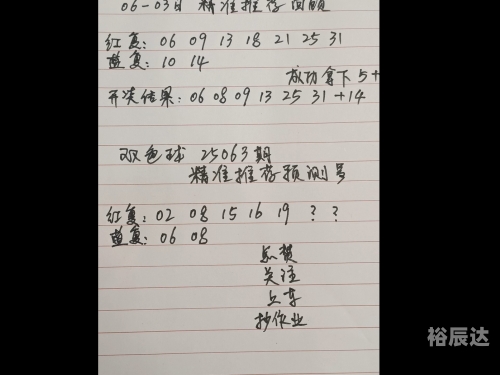 06-03日 精准推荐回顾
红复: 06 09 13 18 21 25 31
蓝复: 10 14
成功拿下5+
开奖结果: 06 08 09 13 25 31+14
双色球 25063期
精准推荐预测号
红复: 02 08 15 16 19 ? ?
蓝复: 06 08
点赞
关注
上车
抄作业
裕辰达